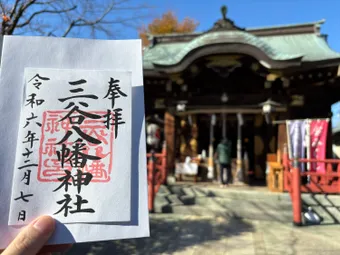 奉拝
三谷八幡神社
令和六年十二月七日